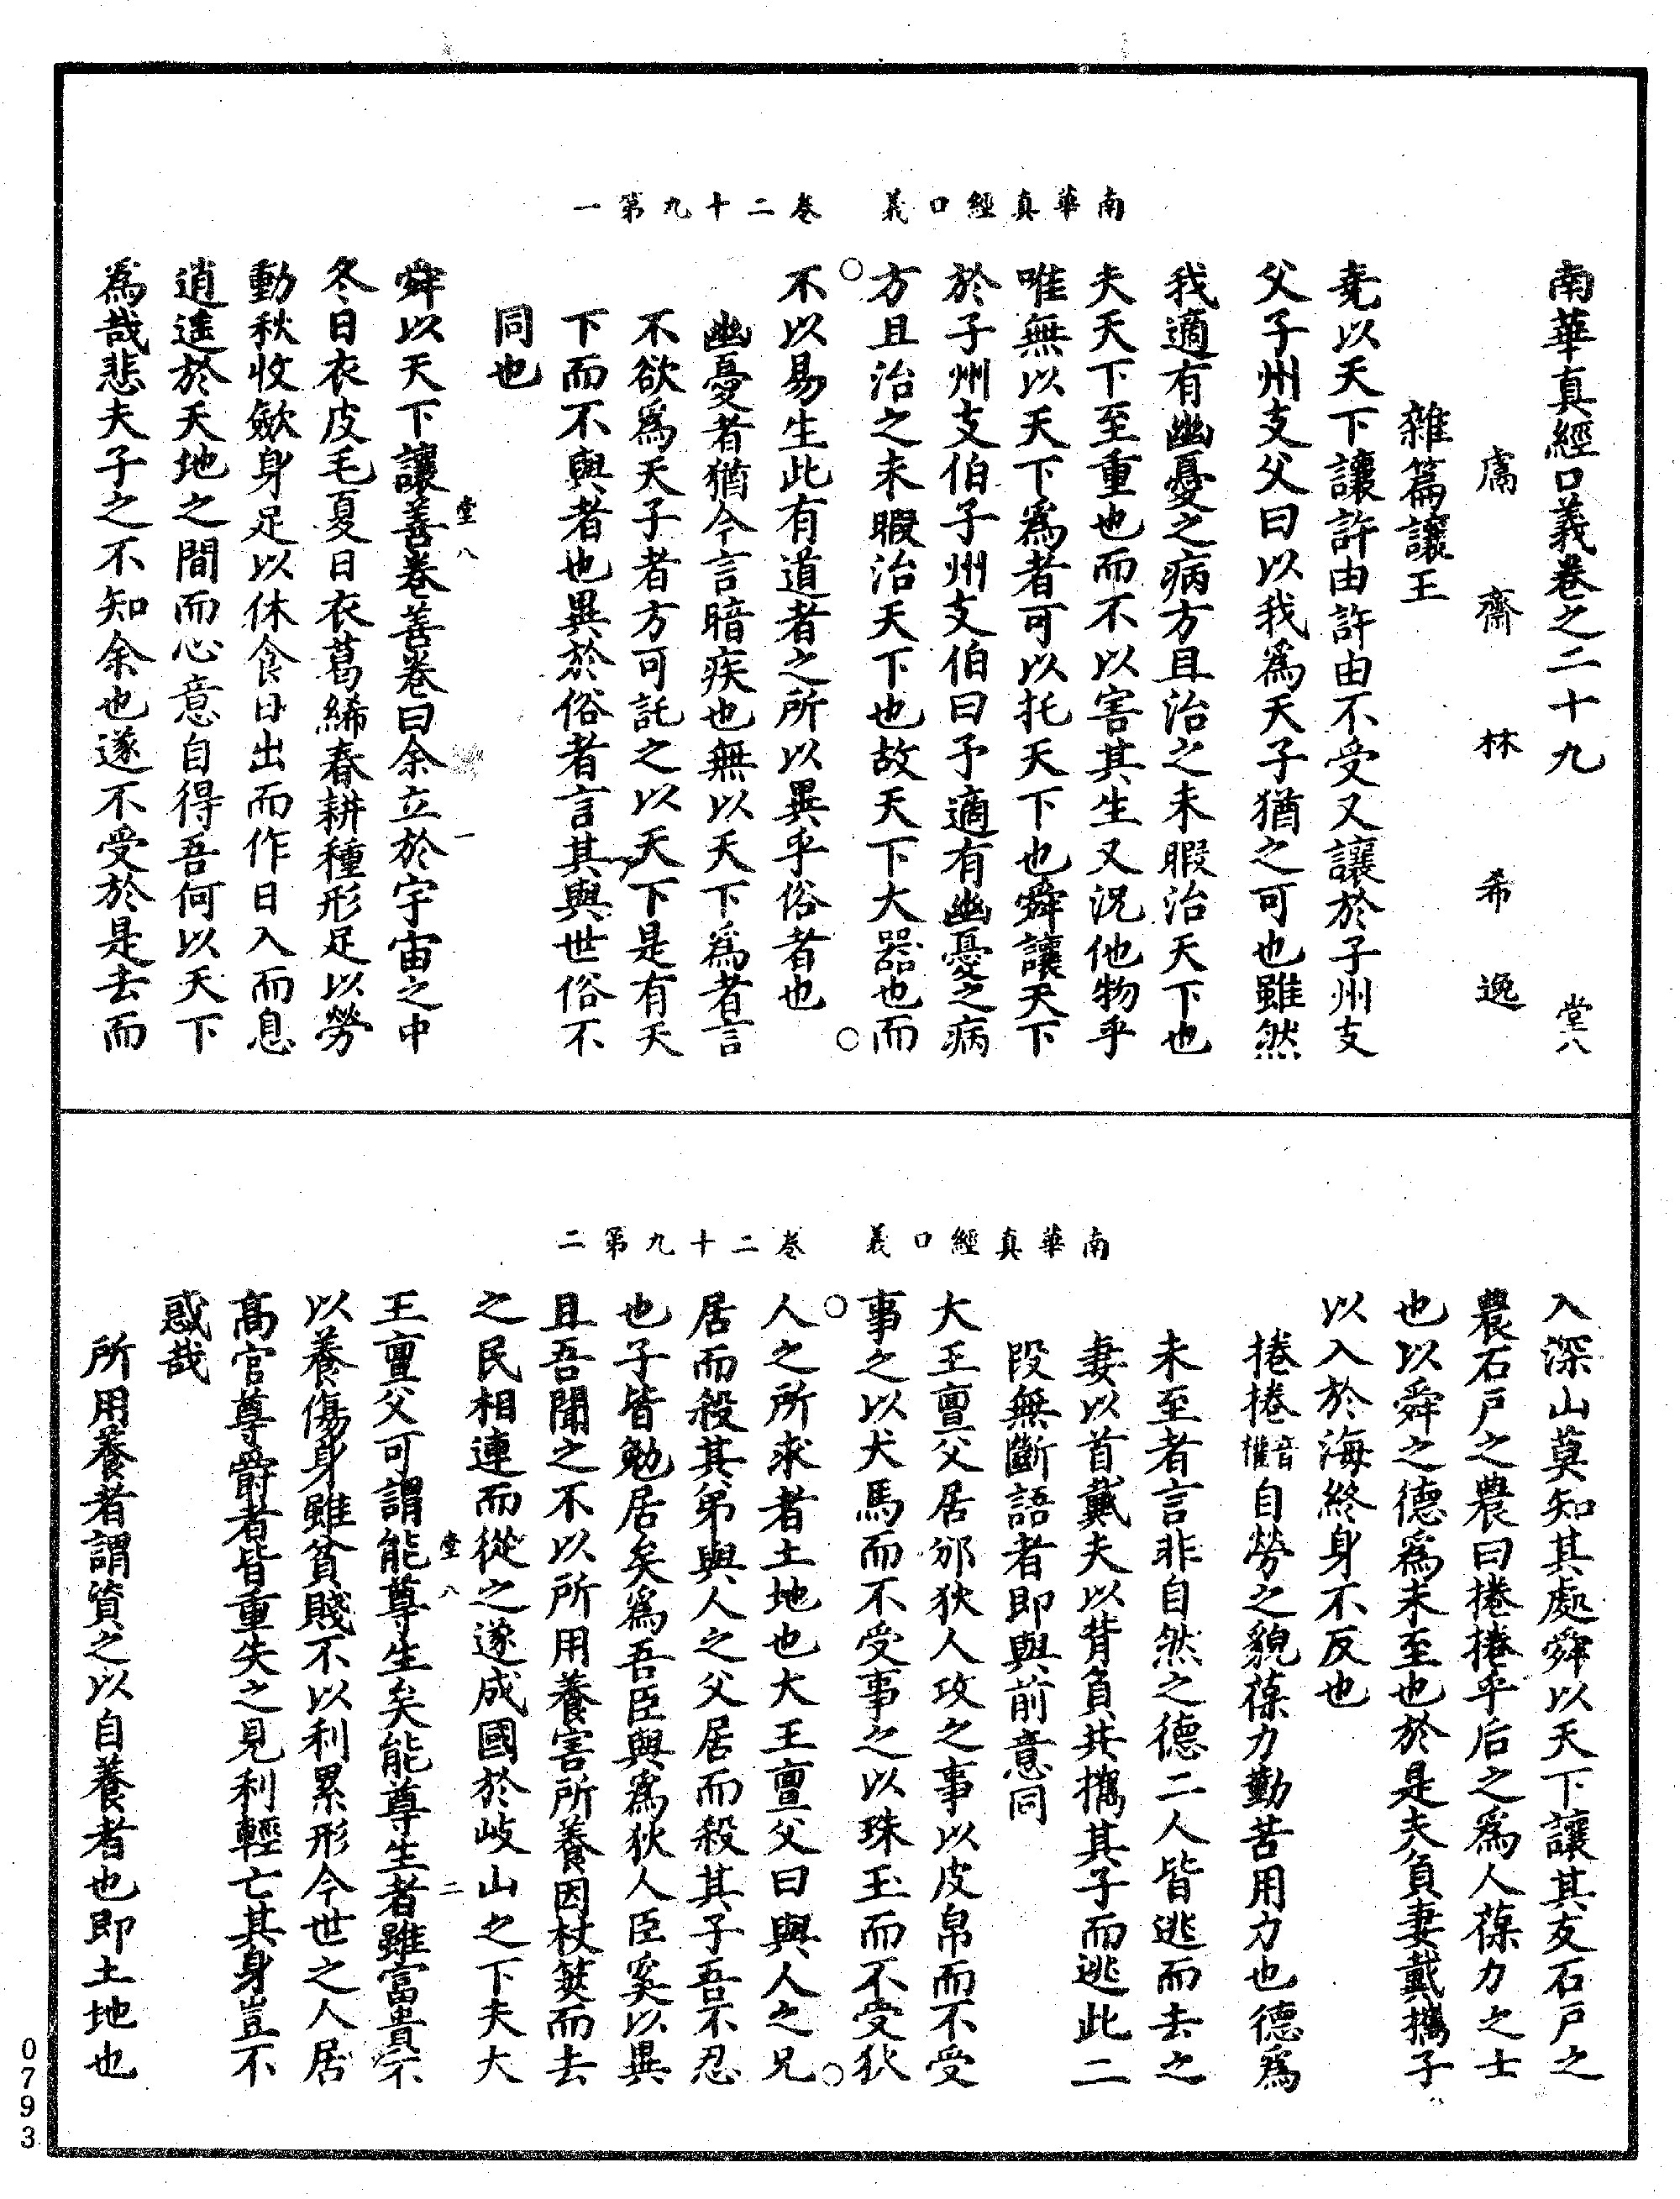 南華真經口義 卷二十九第一
南華真經口義卷之二十九 堂八
鬳齋林希逸
雜篇讓王
堯以天下讓許由許由不受又讓於子州支
父子州支父曰以我爲天子猶之可也雖然
我適有幽憂之病方且治之未暇治天下也
夫天下至重也而不以害其生又況他物乎
唯無以天下爲者可以托天下也舜讓天下
於子州支伯子州支伯曰予適有幽憂之病
方且治之未暇治天下也故天下大器也而
不以易生此有道者之所以異乎俗者也
幽憂者猶今言暗疾也無以天下爲者言
不欲爲天子者方可託之以天下是有天
下而不與者也異於俗者言其與世俗不
同也
堂八 一
舜以天下讓善卷善卷曰余立於宇宙之中
冬日衣皮毛夏日衣葛絺春耕種形足以勞
動秋收斂身足以休食日出而作日入而息
逍遙於天地之間而心意自得吾何以天下
爲哉悲夫子之不知余也遂不受於是去而
南華真經口義 卷二十九第二
入深山莫知其處舜以天下讓其友石戶之
農石戶之農曰捲捲乎后之爲人葆力之士
也以舜之德爲未至也於是夫負妻戴攜子
以入於海終身不反也
捲捲音權自勞之貌葆力勤苦用力也德爲
未至者言非自然之德二人皆逃而去之
妻以首戴夫以背負共攜其子而逃此二
段無斷語者即與前意同
大王亶父居邠狄人攻之事以皮帛而不受
事之以犬馬而不受事之以珠玉而不受狄
人之所求者土地也大王亶父曰與人之兄
居而殺其弟與人之父居而殺其子吾不忍
也子皆勉居矣爲吾臣與爲狄人臣奚以異
且吾聞之不以所用養害所養因杖筴而去
之民相連而從之遂成國於岐山之下夫大
堂八 二
王亶父可謂能尊生矣能尊生者雖富貴不
以養傷身雖貧賤不以利累形今世之人居
高官尊爵者皆重失之見利輕亡其身豈不
惑哉
所用養者謂資之以自養者也即土地也
0793